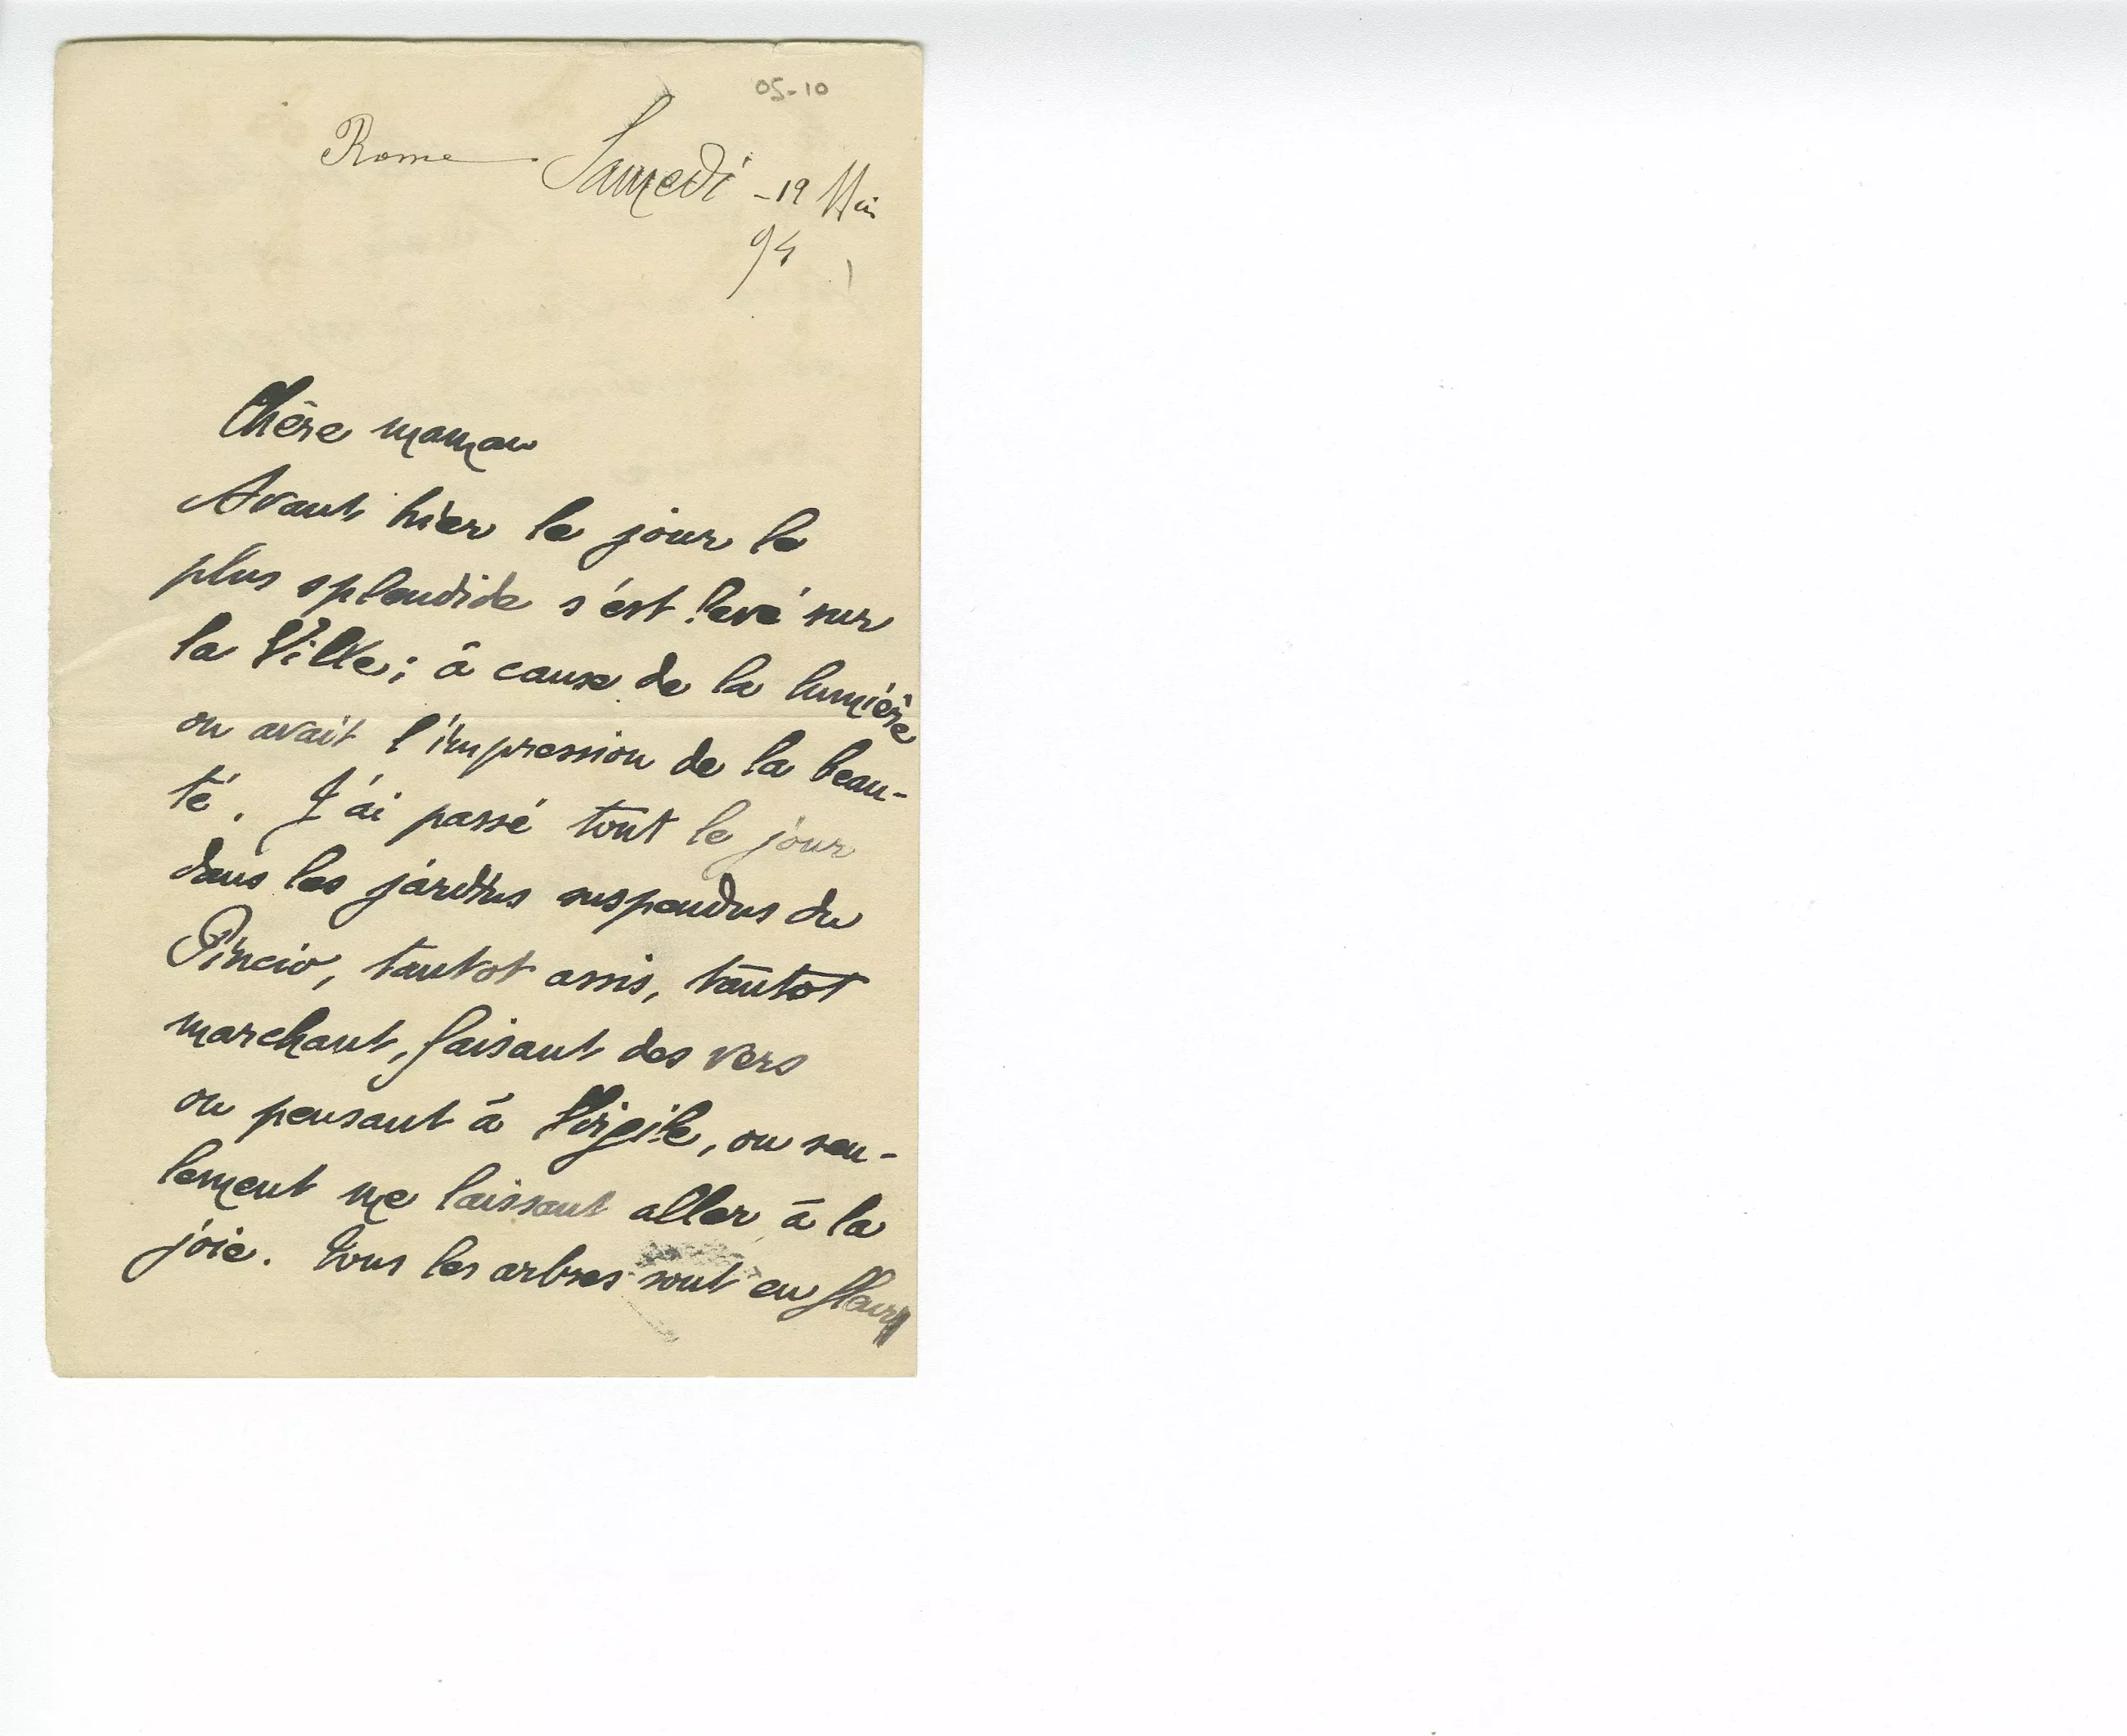 05-10
Rome - Samedi - 19 Mai
94
Chère maman
Avant hier le jour le
plus splendide s'est levé sur
la Ville ; à cause de la lumière
on avait l'impression de la beau-
té. J'ai passé tout le jour
dans les jardins suspendus du
Pincio, tantot assis, tantot
marchant, faisant des vers
ou pensant à Virgile, ou seu-
lement me laissant aller à la
joie. Tous les arbres sont en fleurs